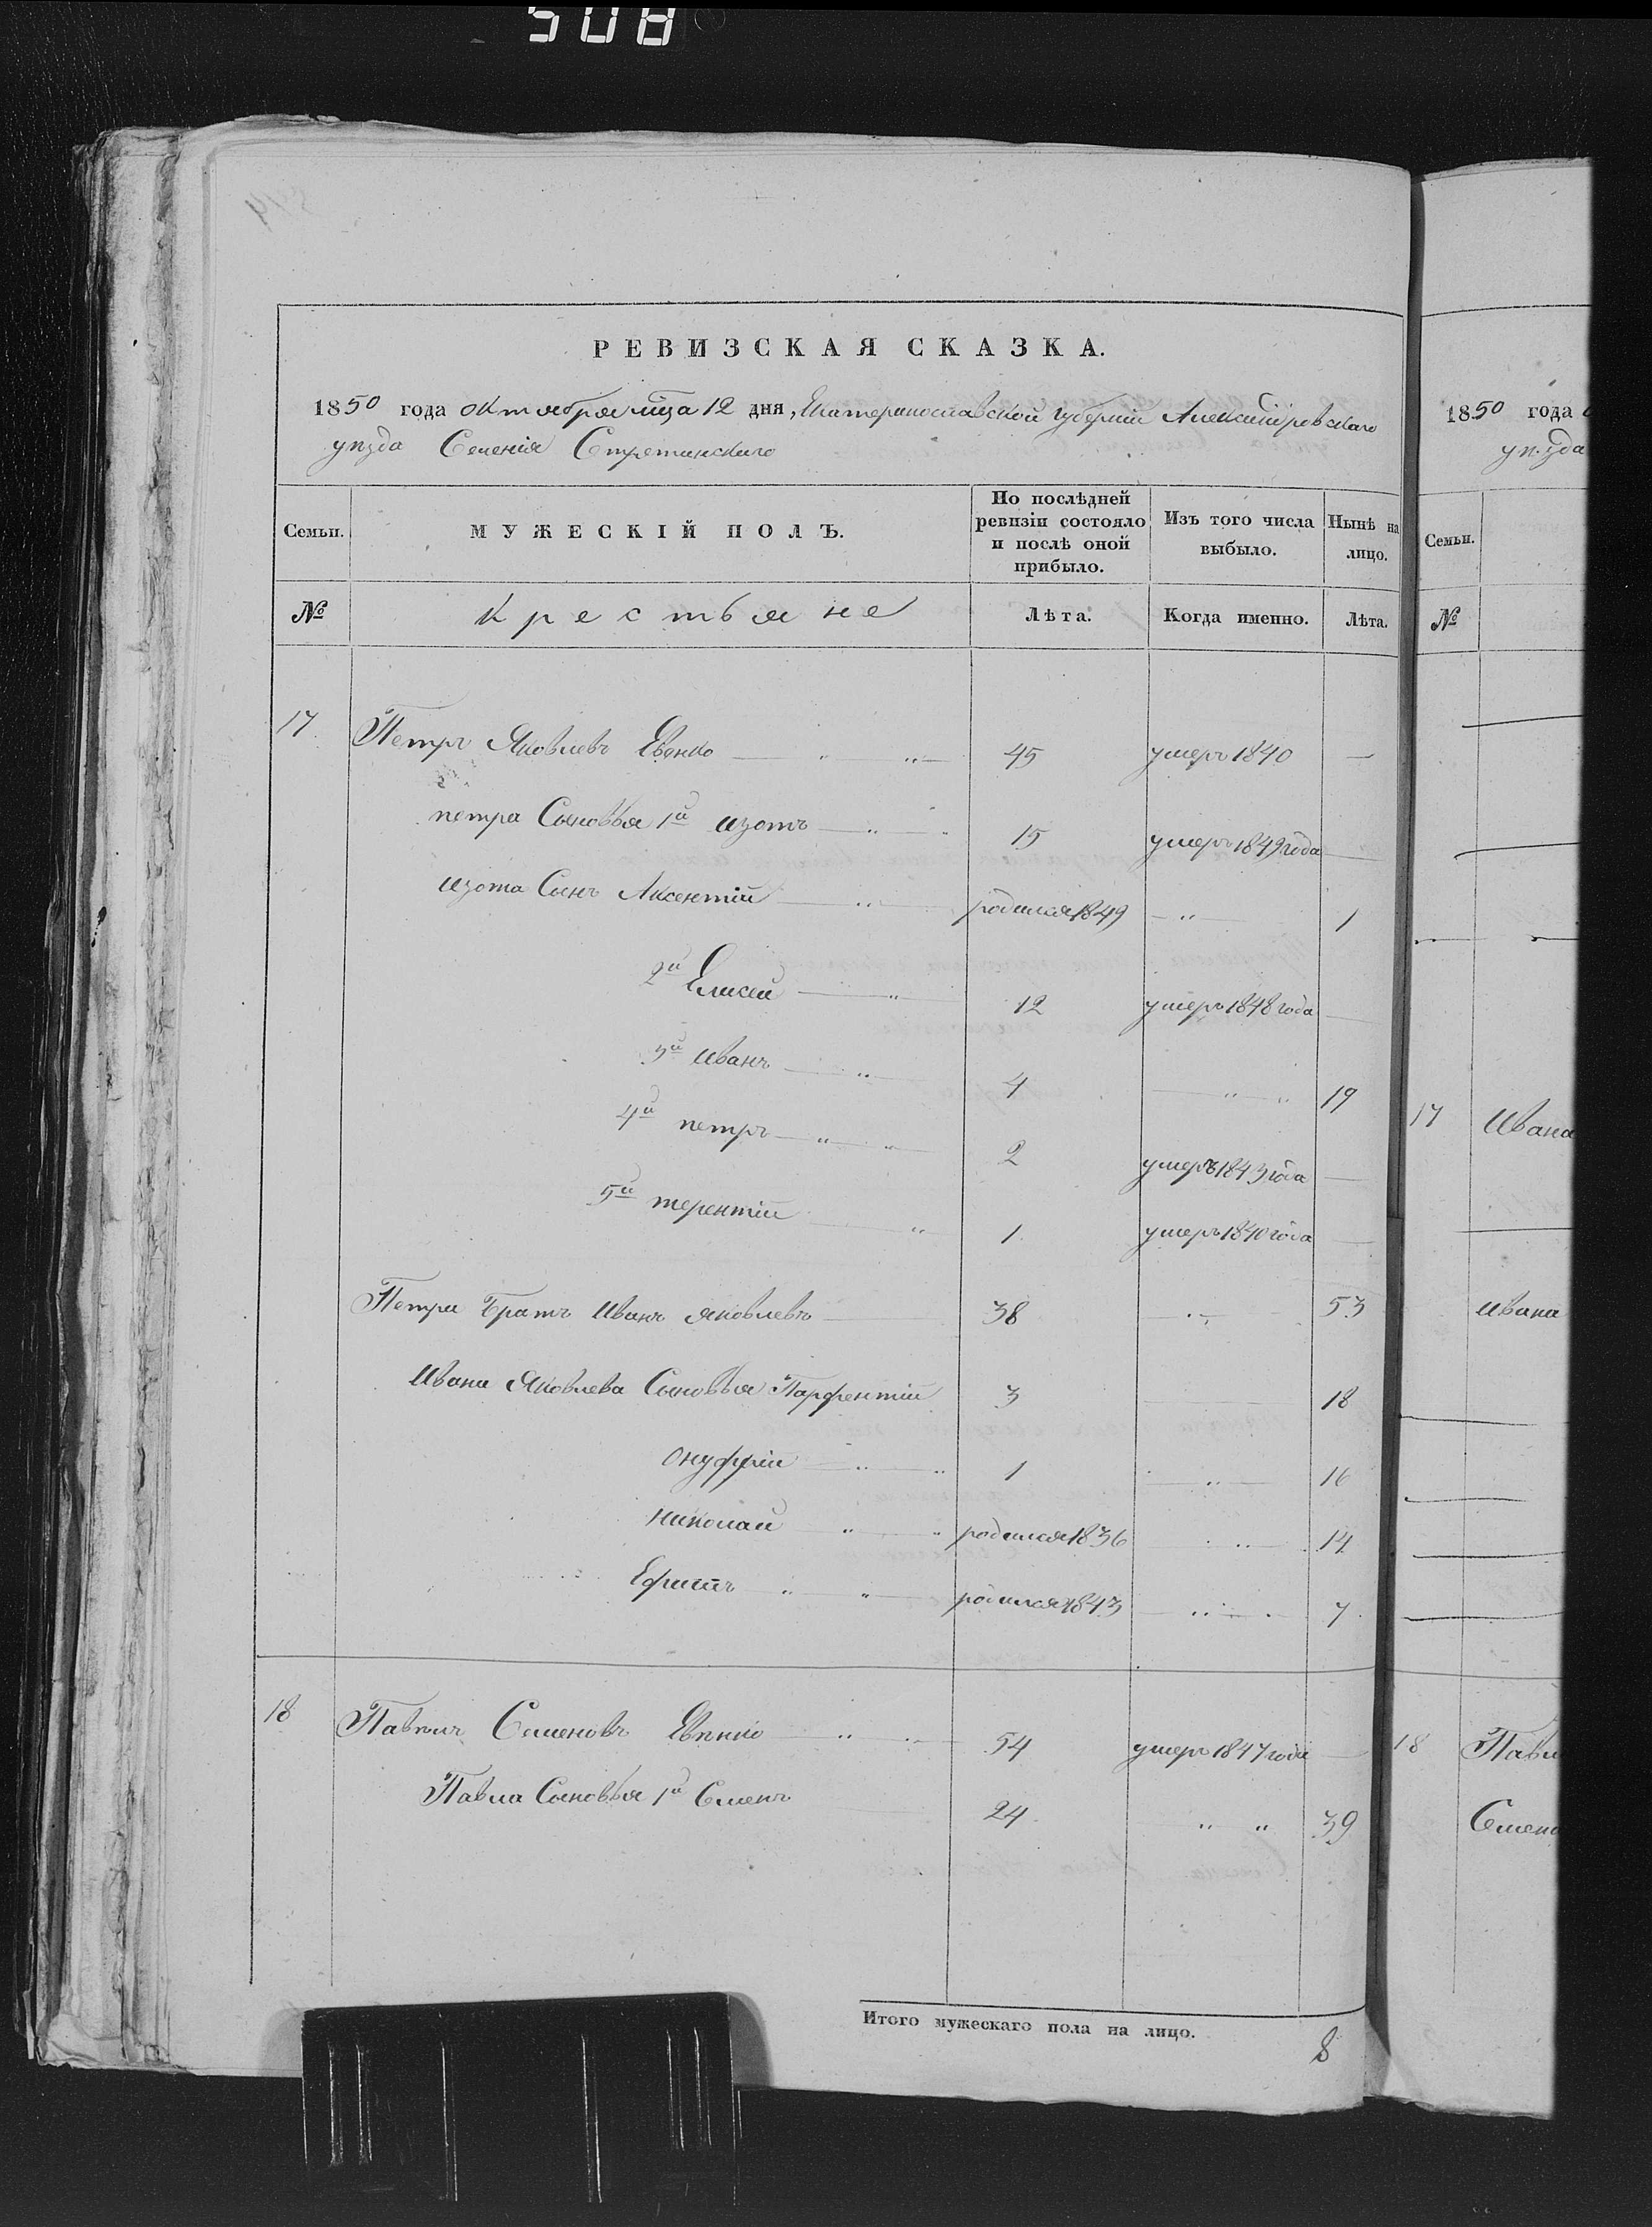 508
РЕВИЗСКАЯ СКАЗКА.
1850 года октября мца 12 дня, Екатеринославской губернiи Александровскаго
уѣзда Селенiя Стрятинскаго
Семьи.
МУЖЕСКIЙ ПОЛЪ.
По послѣдней ревизiи состояло и послѣ оной прибыло.
Изъ того числа выбыло.
Нынѣ на лицо.
№
крестьяне
Лѣта.
Когда именно.
Лѣта.
17 Петръ Яковлевъ Евенко 45 умеръ 1840 —
петра Сыновья 1й изотъ 15 умеръ 1849 года —
изота Сынъ Аксентiй родился 1849 — 1
2й Елисей 12 умеръ 1848 года —
3й Иванъ 4 — 19
4й петръ 2 умеръ 1843 года —
5й терентiй 1 умеръ 1840 года —
Петра Братъ Иванъ яковлевъ 38 — 53
Ивана Яковлева Сыновья Парфентiй 3 — 18
онуфрiй 1 — 16
николай родился 1836 — 14
Ефимъ родился 1843 — 7
18 Павелъ Семеновъ Евенко 54 умеръ 1847 года —
Павла Сыновья 1й Семенъ 24 — 39
Итого мужескаго пола на лицо. 8
1850 года
уѣзда
Семьи.
№
17 Ивана
ивана
18 Павл
Семен